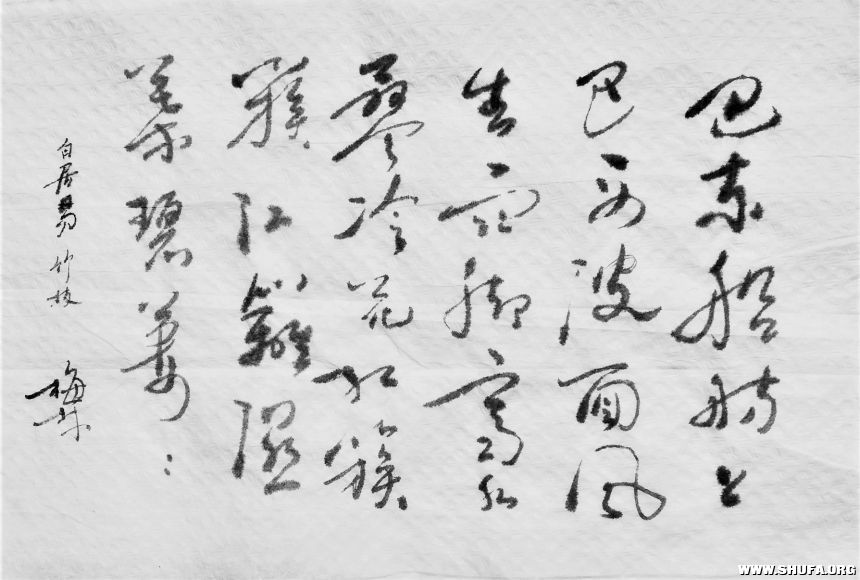 巴東船舫上
巴西波面風
生雨脚齊水
蓼冷花紅簇
簇江蘺濕
葉碧萋：
白居易 竹枝
梅